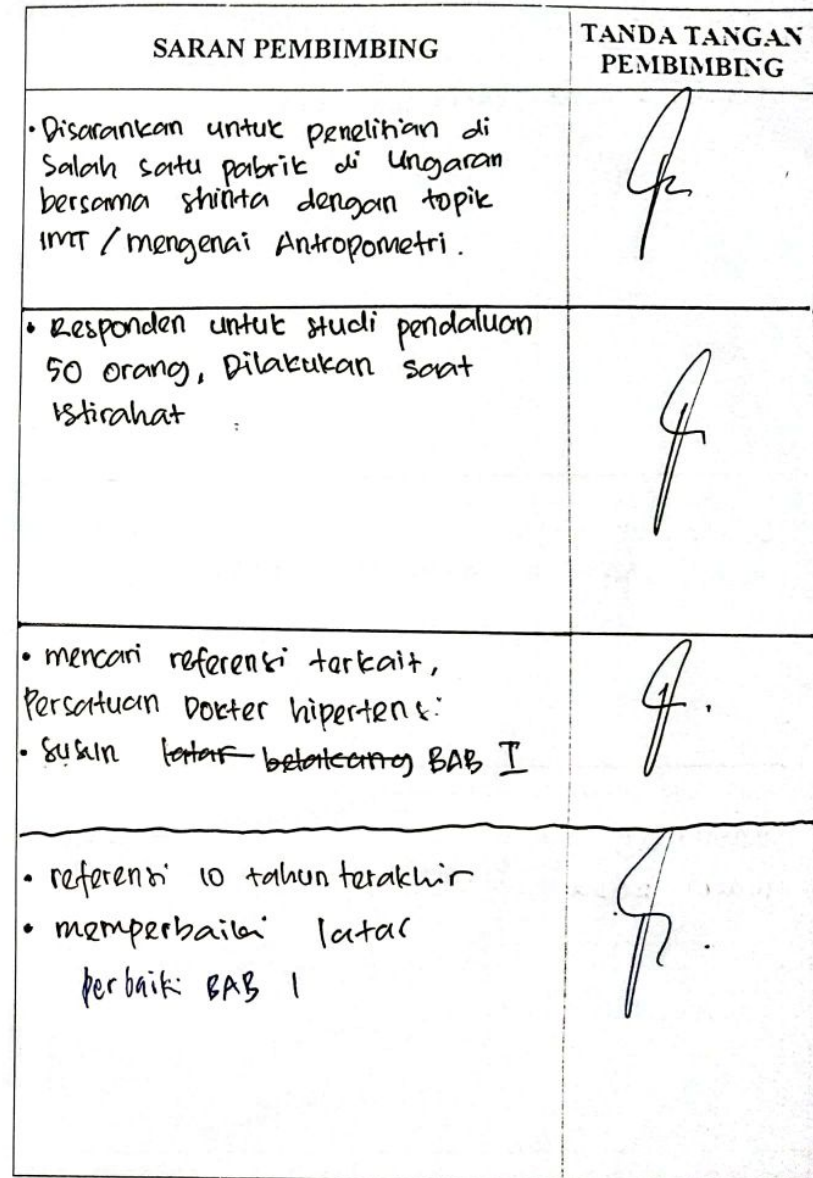 SARAN PEMBIMBING
TANDA TANGAN
PEMBIMBING
• Disarankan untuk penelitian di
Salah satu pabrik di Ungaran
bersama shinta dengan topik
IMT / mengenai Antropometri.
• Responden untuk studi pendaluan
50 orang, Dilakukan saat
istirahat
• mencari referensi terkait,
Persatuan Dokter hipertensi
• susun latar belakang BAB I
• referensi 10 tahun terakhir
• memperbaiki latar
perbaiki BAB 1